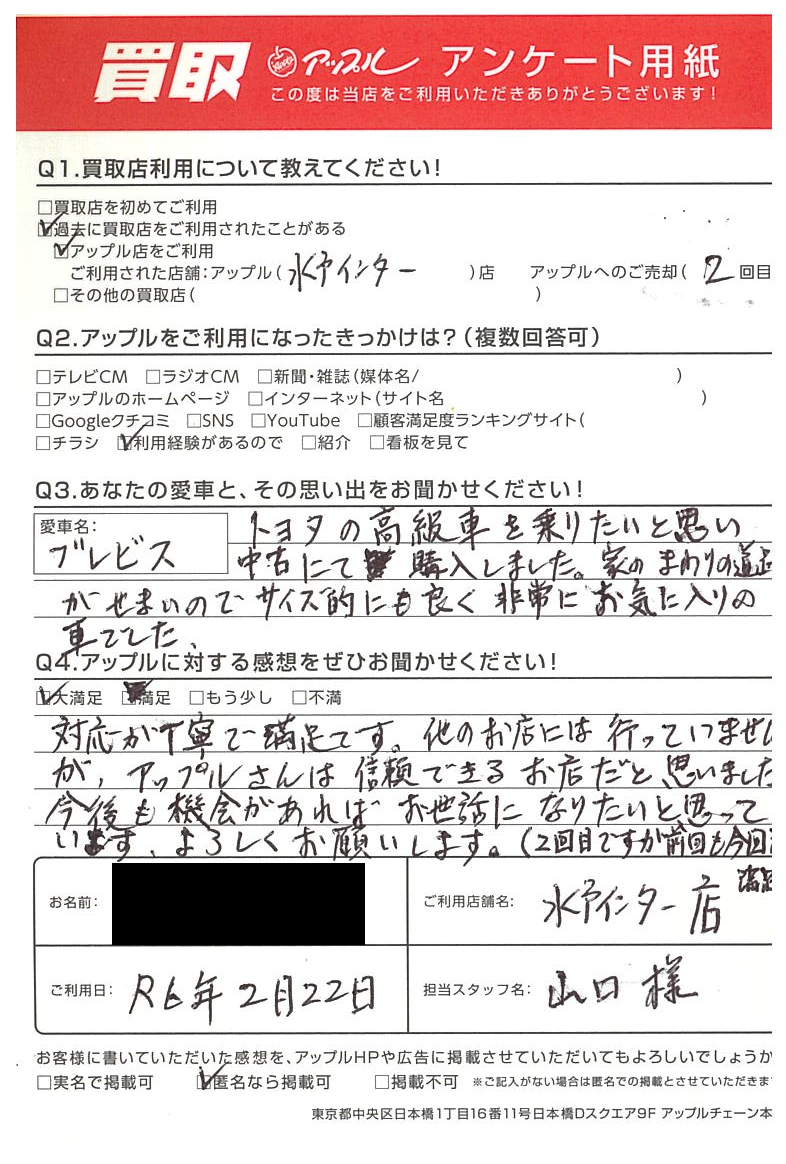 買取 アップル アンケート用紙
この度は当店をご利用いただきありがとうございます!
Q1.買取店利用について教えてください!
□買取店を初めてご利用
☑過去に買取店をご利用されたことがある
☑アップル店をご利用
ご利用された店舗:アップル( 水戸インター )店 アップルへのご売却( 2 回目
□その他の買取店( )
Q2.アップルをご利用になったきっかけは?(複数回答可)
□テレビCM □ラジオCM □新聞・雑誌(媒体名/ )
□アップルのホームページ □インターネット(サイト名 )
□Googleクチコミ □SNS □YouTube □顧客満足度ランキングサイト(
□チラシ ☑利用経験があるので □紹介 □看板を見て
Q3.あなたの愛車と、その思い出をお聞かせください!
愛車名:
ブレビス
トヨタの高級車を乗りたいと思い
中古にて 購入しました。家のまわりの道路
がせまいのでサイズ的にも良く非常にお気に入りの
車でした、
Q4.アップルに対する感想をぜひお聞かせください!
☑大満足 満足 □もう少し □不満
対応が丁寧で満足です。他のお店には行っていません
が、アップルさんは信頼できるお店だと思いました
今後も機会があればお世話になりたいと思って
います、よろしくお願いします。(2回目ですが前回も今回
満足
お名前:
ご利用店舗名: 水戸インター店
ご利用日: R6年2月22日
担当スタッフ名: 山口様
お客様に書いていただいた感想を、アップルHPや広告に掲載させていただいてもよろしいでしょうか
□実名で掲載可 ☑匿名なら掲載可 □掲載不可 ※ご記入がない場合は匿名での掲載とさせていただきま
東京都中央区日本橋1丁目16番11号日本橋Dスクエア9F アップルチェーン本